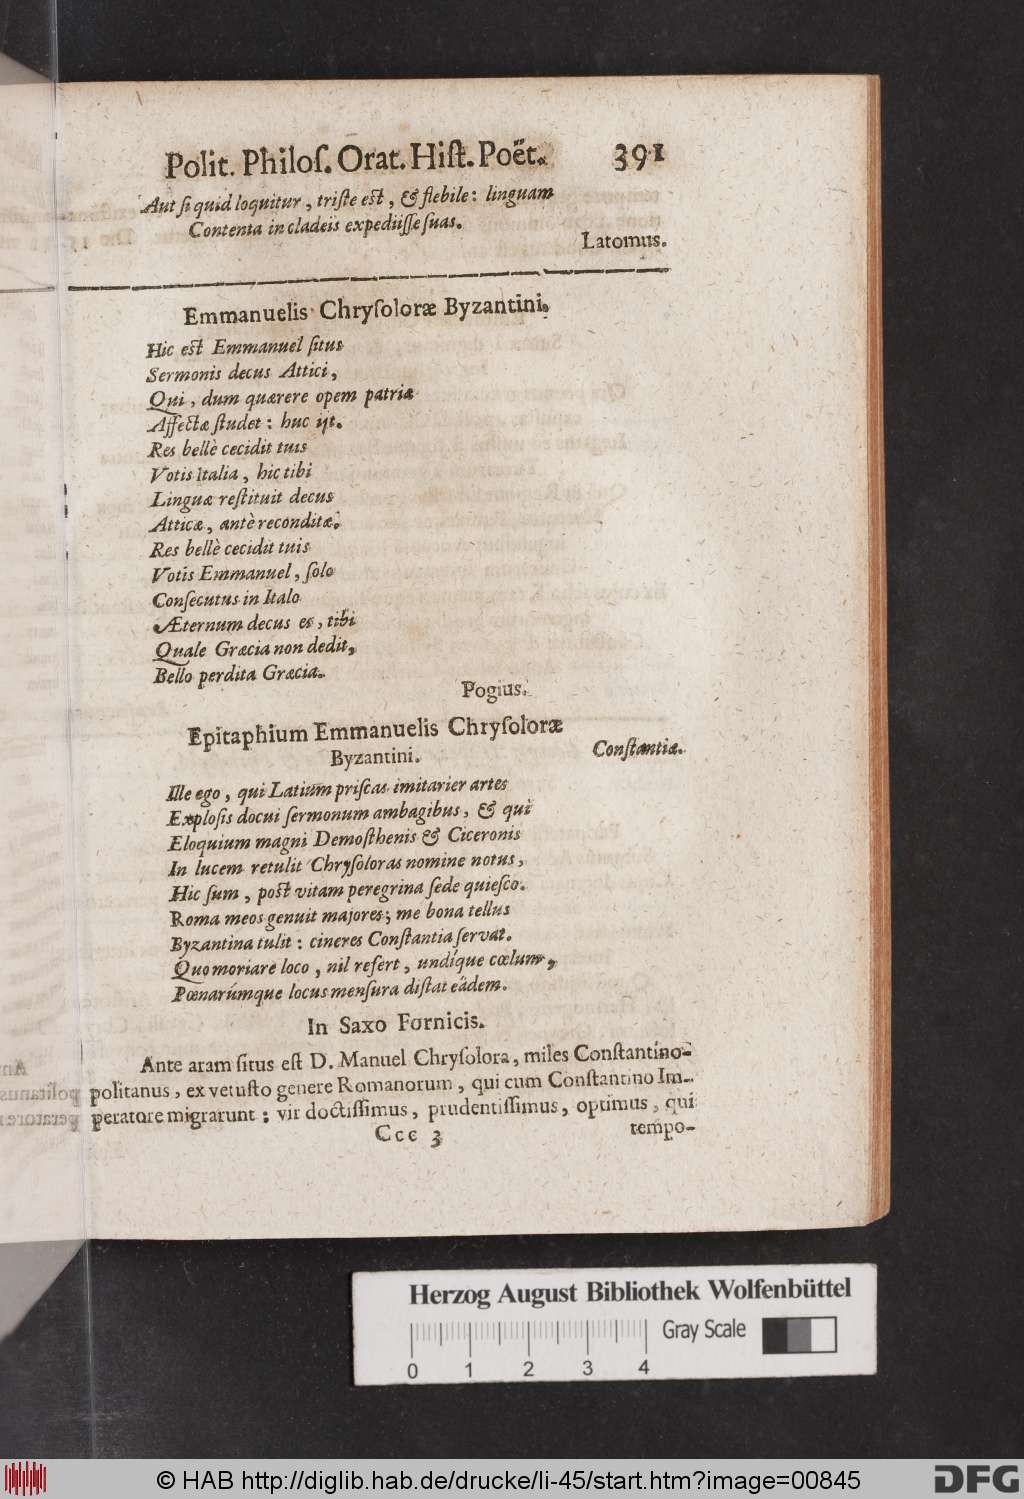 Polit. Philoſ. Orat. Hiſt. Poët. 391
Aut ſi quid loquitur, triſte eſt, & flebile: linguam
Contenta in cladeis expediiſſe ſuas.
Latomus.
Emmanuelis Chryſoloræ Byzantini.
Hic eſt Emmanuel ſitus
Sermonis decus Attici,
Qui, dum quærere opem patriæ
Affectæ ſtudet: huc ijt.
Res bellè cecidit tuis
Votis Italia, hic tibi
Linguæ reſtituit decus
Atticæ, antè reconditæ.
Res bellè cecidit tuis
Votis Emmanuel, ſolo
Conſecutus in Italo
Æternum decus es, tibi
Quale Græcia non dedit,
Bello perdita Græcia.
Pogius.
Epitaphium Emmanuelis Chryſoloræ
Byzantini.
Conſtantiæ.
Ille ego, qui Latium priſcas imitarier artes
Exploſis docui ſermonum ambagibus, & qui
Eloquium magni Demoſthenis & Ciceronis
In lucem retulit Chryſoloras nomine notus,
Hic ſum, poſt vitam peregrina ſede quieſco.
Roma meos genuit majores; me bona tellus
Byzantina tulit: cineres Conſtantia ſervat.
Quo moriare loco, nil refert, undíque cœlum,
Pœnarúmque locus menſura diſtat eâdem.
In Saxo Fornicis.
Ante aram ſitus eſt D. Manuel Chryſolora, miles Conſtantino-
politanus, ex vetuſto genere Romanorum, qui cum Conſtantino Im-
peratore migrarunt: vir doctiſſimus, prudentiſſimus, optimus, qui
Ccc 3 tempo-
Herzog August Bibliothek Wolfenbüttel
Gray Scale
0 1 2 3 4
© HAB http://diglib.hab.de/drucke/li-45/start.htm?image=00845
DFG